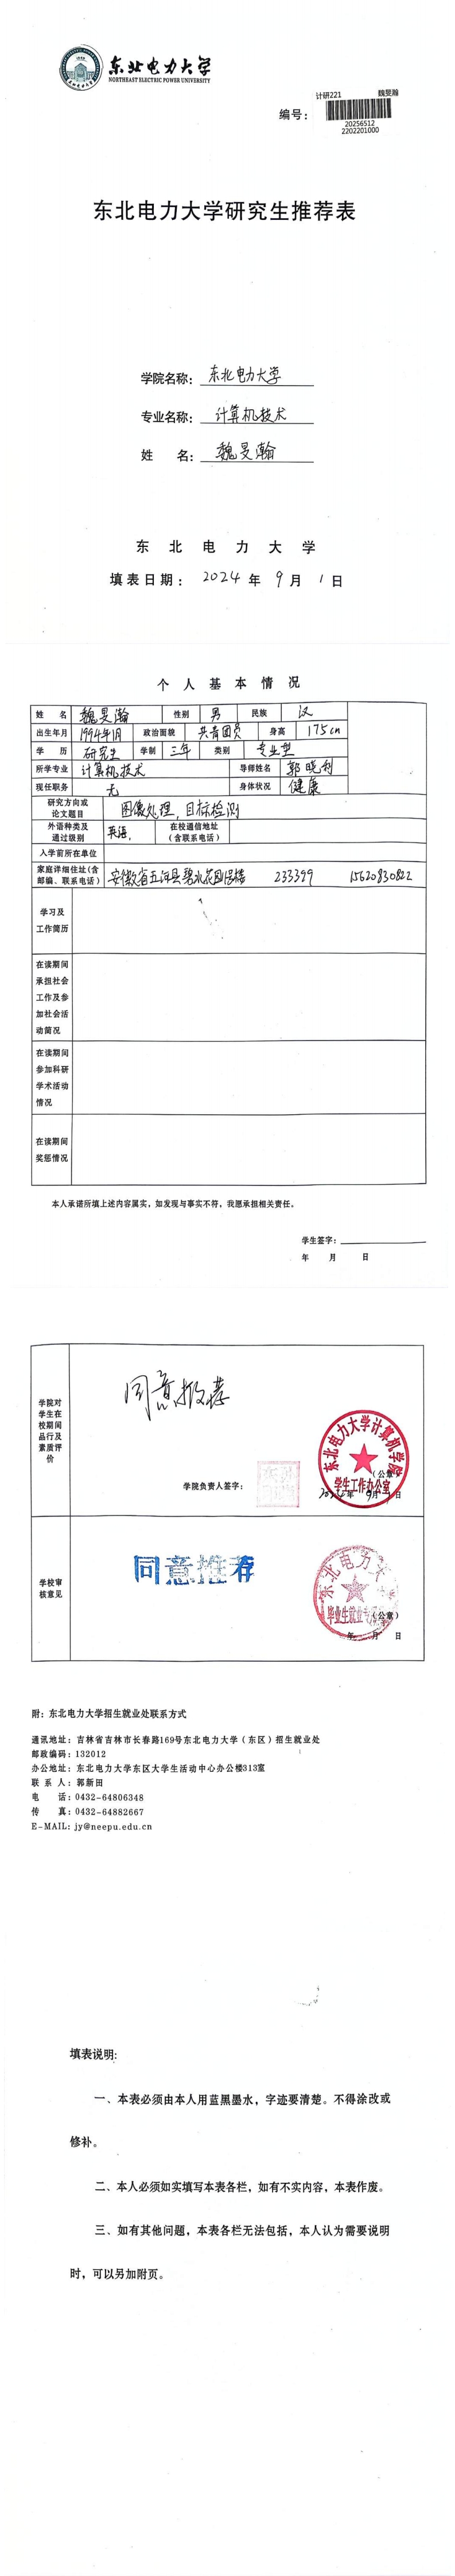 东北电力大学
NORTHEAST ELECTRIC POWER UNIVERSITY
计研221 魏旻瀚
编号：
20256512
2202201000
东北电力大学研究生推荐表
学院名称： 东北电力大学
专业名称： 计算机技术
姓 名： 魏旻瀚
东 北 电 力 大 学
填表日期： 2024 年 9 月 1 日
个 人 基 本 情 况
姓 名 魏旻瀚 性别 男 民族 汉
出生年月 1994年1月 政治面貌 共青团员 身高 175cm
学 历 研究生 学制 三年 类别 专业型
所学专业 计算机技术 导师姓名 郭晓利
现任职务 无 身体状况 健康
研究方向或论文题目 图像处理，目标检测
外语种类及通过级别 英语. 在校通信地址（含联系电话）
入学前所在单位
家庭详细住址(含邮编、联系电话) 安徽省五河县碧水花园 233399 15620830822
学习及
工作简历
在读期间
承担社会
工作及参
加社会活
动简况
在读期间
参加科研
学术活动
情况
在读期间
奖惩情况
本人承诺所填上述内容属实，如发现与事实不符，我愿承担相关责任。
学生签字：
年 月 日
学院对
学生在
校期间
品行及
素质评
价
同意推荐
学院负责人签字：
东北电力大学计算机学院
学生工作办公室
（公章）
年 9月 日
学校审
核意见
同意推荐
东北电力大
毕业生就业
（公章）
年 月 日
附：东北电力大学招生就业处联系方式
通讯地址：吉林省吉林市长春路169号东北电力大学（东区）招生就业处
邮政编码：132012
办公地址：东北电力大学东区大学生活动中心办公楼313室
联 系 人：郭新田
电 话：0432-64806348
传 真：0432-64882667
E-MAIL: jy@neepu.edu.cn
填表说明:
一、本表必须由本人用蓝黑墨水，字迹要清楚。不得涂改或
修补。
二、本人必须如实填写本表各栏，如有不实内容，本表作废。
三、如有其他问题，本表各栏无法包括，本人认为需要说明
时，可以另加附页。